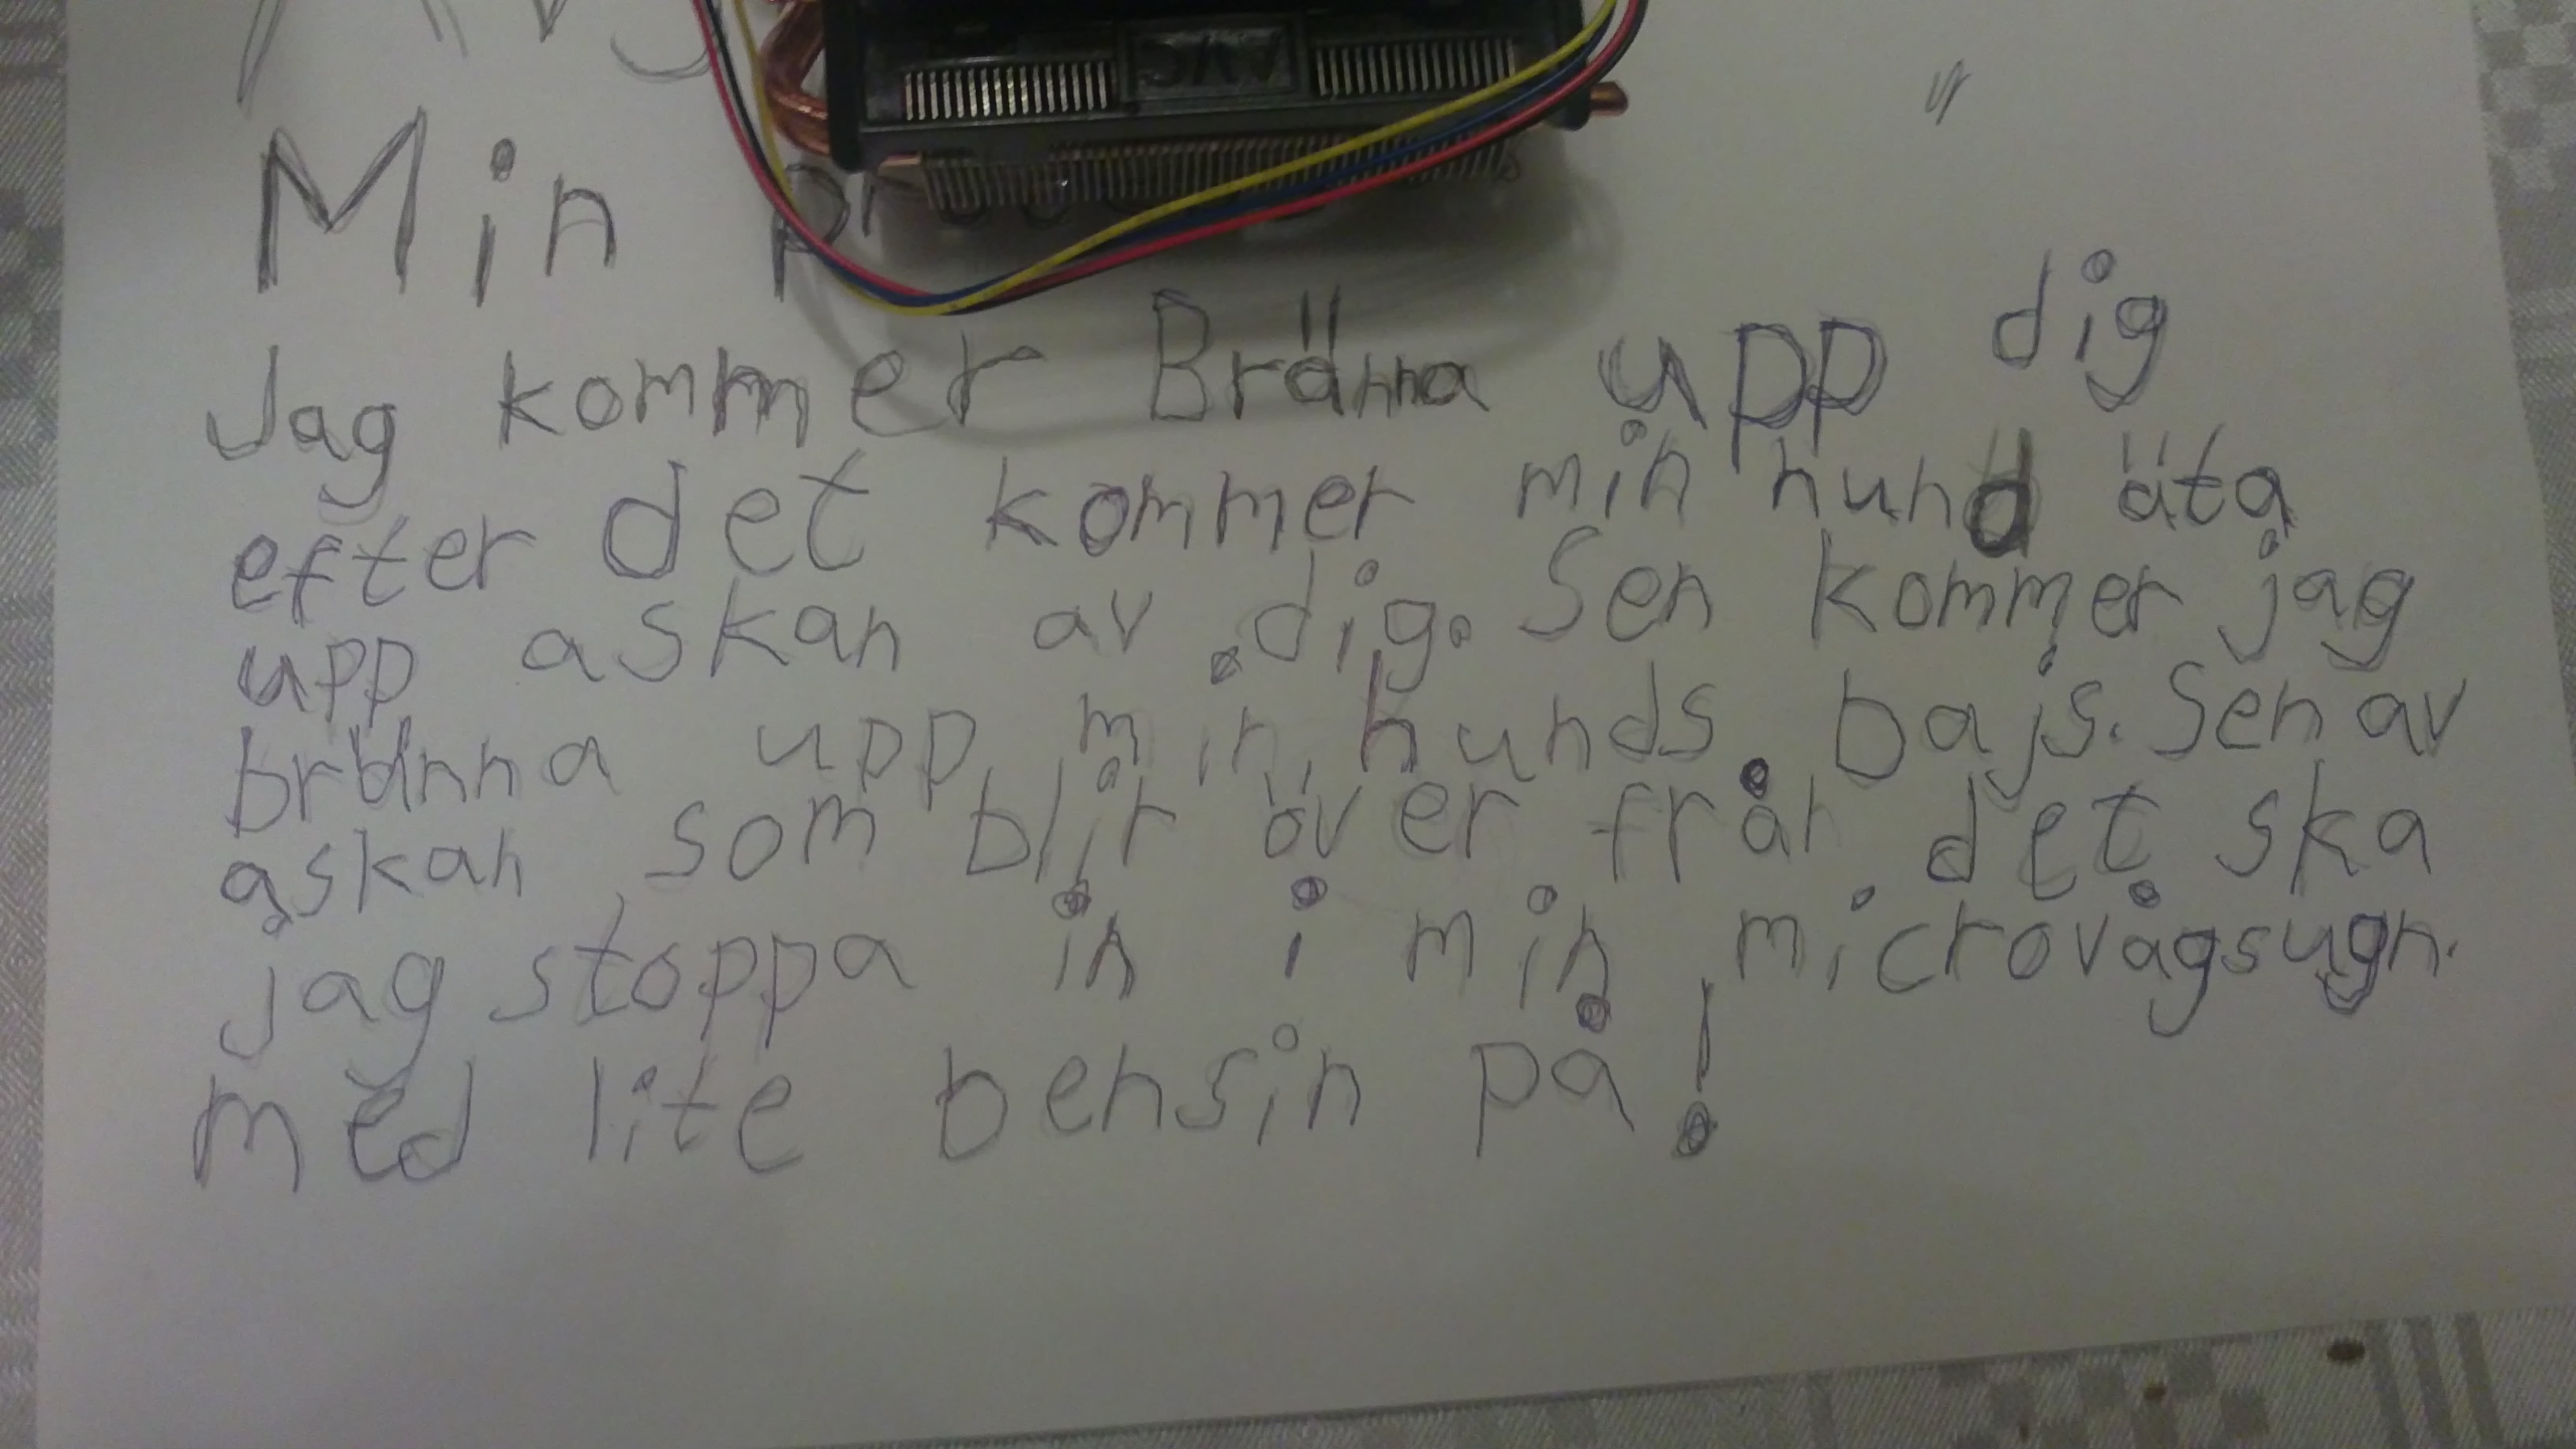 AVC
Min
Jag kommer Bränna upp dig
efter det kommer min hund äta
upp askan av dig. Sen kommer jag
bränna upp min hunds bajs. Sen av
askan som blir över från det ska
jag stoppa in i min microvågsugn.
med lite bensin på!